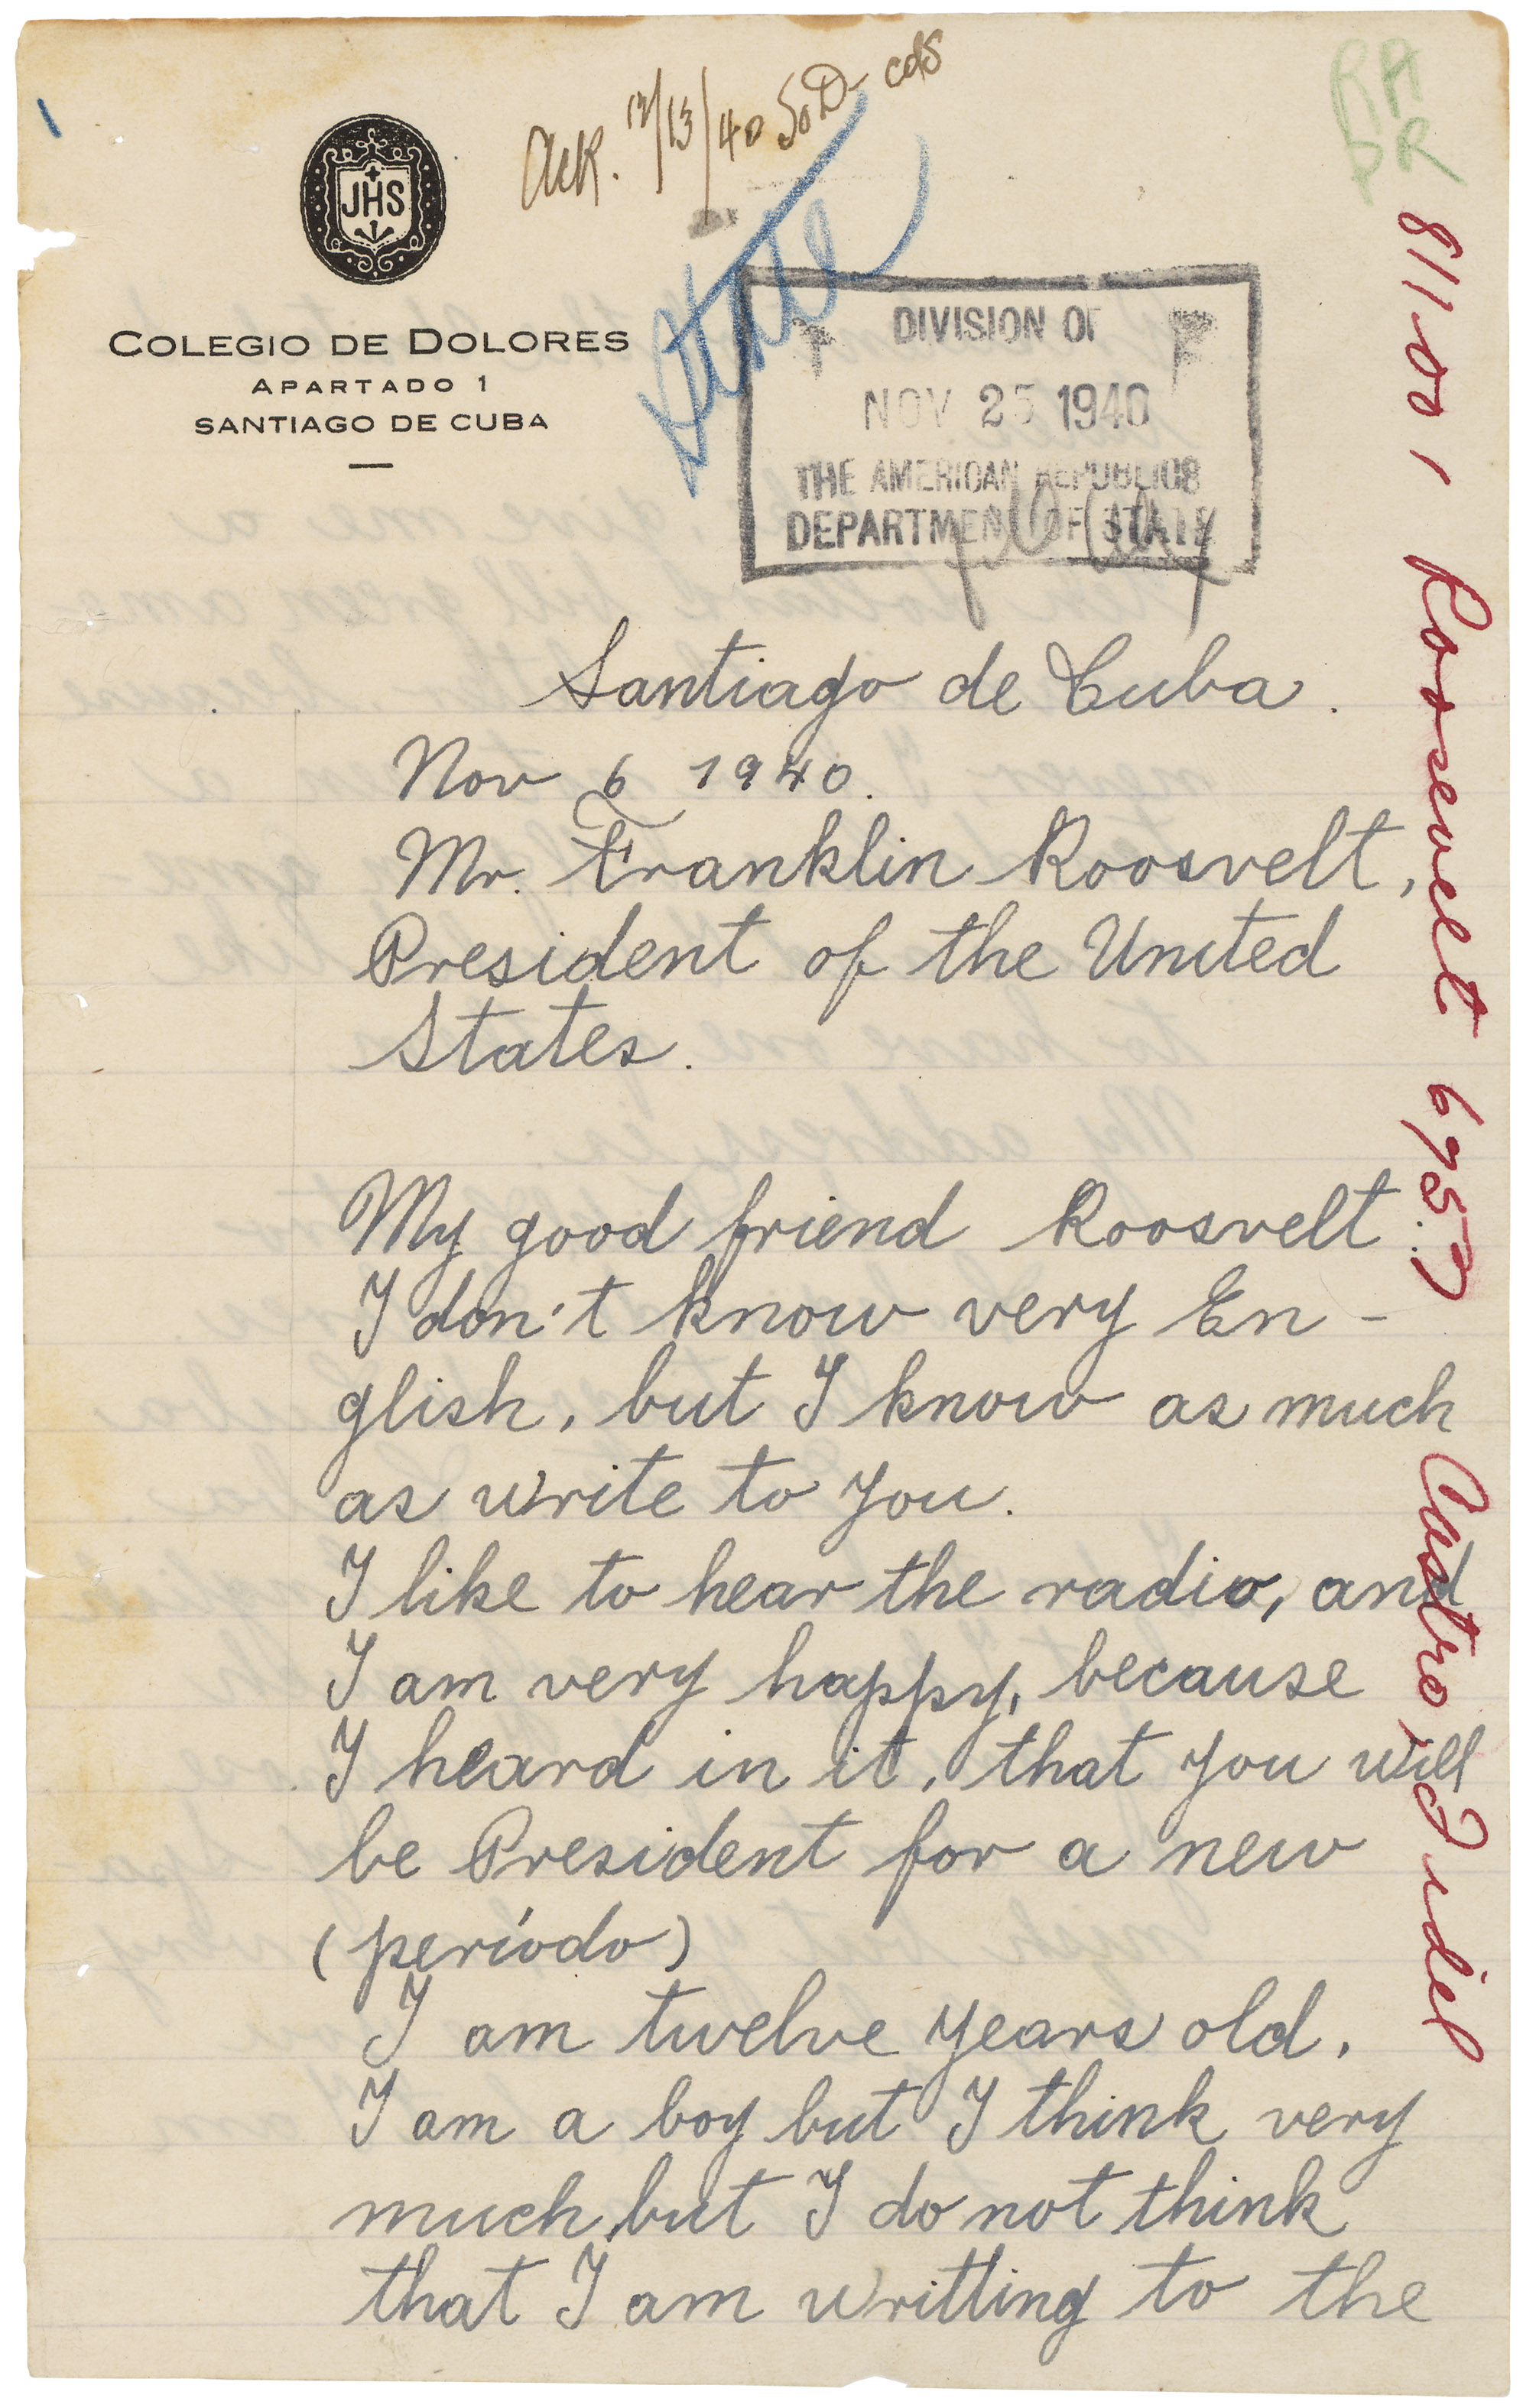 Ack. 12/13/40 SoD- cds
RA
PR
JHS
COLEGIO DE DOLORES
APARTADO 1
SANTIAGO DE CUBA
State
DIVISION OF
NOV 25 1940
THE AMERICAN REPUBLICS
DEPARTMENT OF STATE
811.001 Roosevelt 6957
Castro, Fidel
Santiago de Cuba.
Nov 6 1940.
Mr. Franklin Roosvelt,
President of the United
States.
My good friend Roosvelt:
I don't know very En-
glish, but I know as much
as write to you.
I like to hear the radio, and
I am very happy, because
I heard in it, that you will
be President for a new
(período)
I am twelve years old.
I am a boy but I think very
much, but I do not think
that I am writting to the